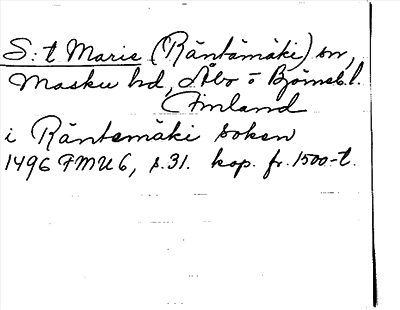 S:t Marie (Räntämäki) sn,
Masku hd, Åbo o Björneb.l.
(Finland
i Räntemäki soken
1496 FMU 6, s.31. kop. fr. 1500-t.